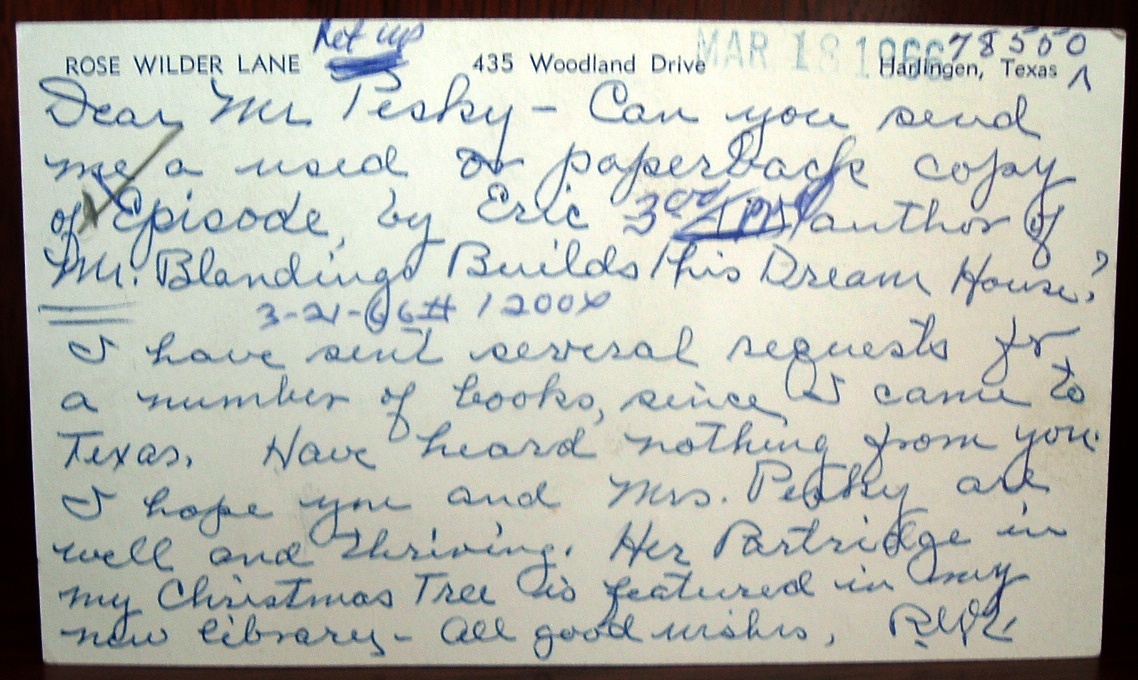 Ret up
ROSE WILDER LANE 435 Woodland Drive MAR 18 1966 Harlingen, Texas 78550
Dear Mr Pesky - Can you send
me a used or paperback copy
of Episode, by Eric author of
Mr. Blandings Builds His Dream House?
3-21-66 # 1200x
I have sent several requests for
a number of books, since I came to
Texas. Have heard nothing from you.
I hope you and Mrs. Pesky are
well and thriving. Her Partridge in
my Christmas Tree is featured in my
new library - All good wishes, RWL